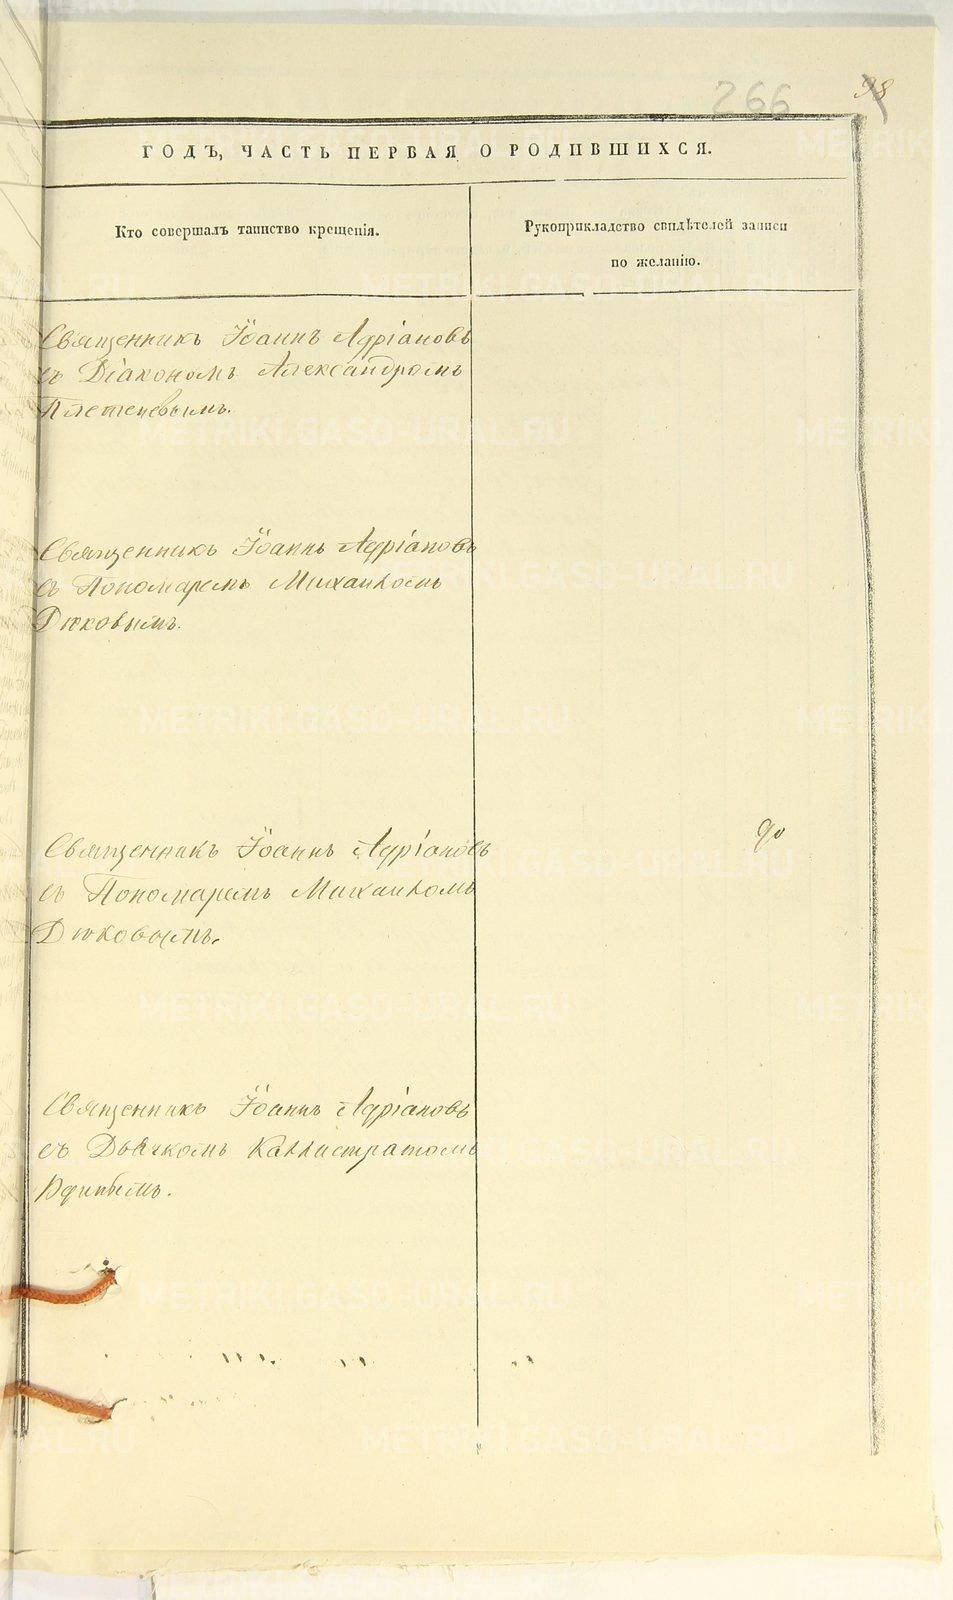 266
98
ГОДЪ, ЧАСТЬ ПЕРВАЯ О РОДИВШИХСЯ.
Кто совершалъ таинство крещенія.
Рукоприкладство свидѣтелей записи
по желанію.
Священникъ Іоаннъ Адріановъ
съ Діакономъ Александромъ
Плетеневымъ.
Священникъ Іоаннъ Адріановъ
съ Пономаремъ Михаиломъ
Дюковымъ.
Священникъ Іоаннъ Адріановъ
съ Пономаремъ Михаиломъ
Дюковымъ.
Священникъ Іоаннъ Адріановъ
съ Дьячкомъ Каллистратомъ
METRIKI.GASO-URAL.RU